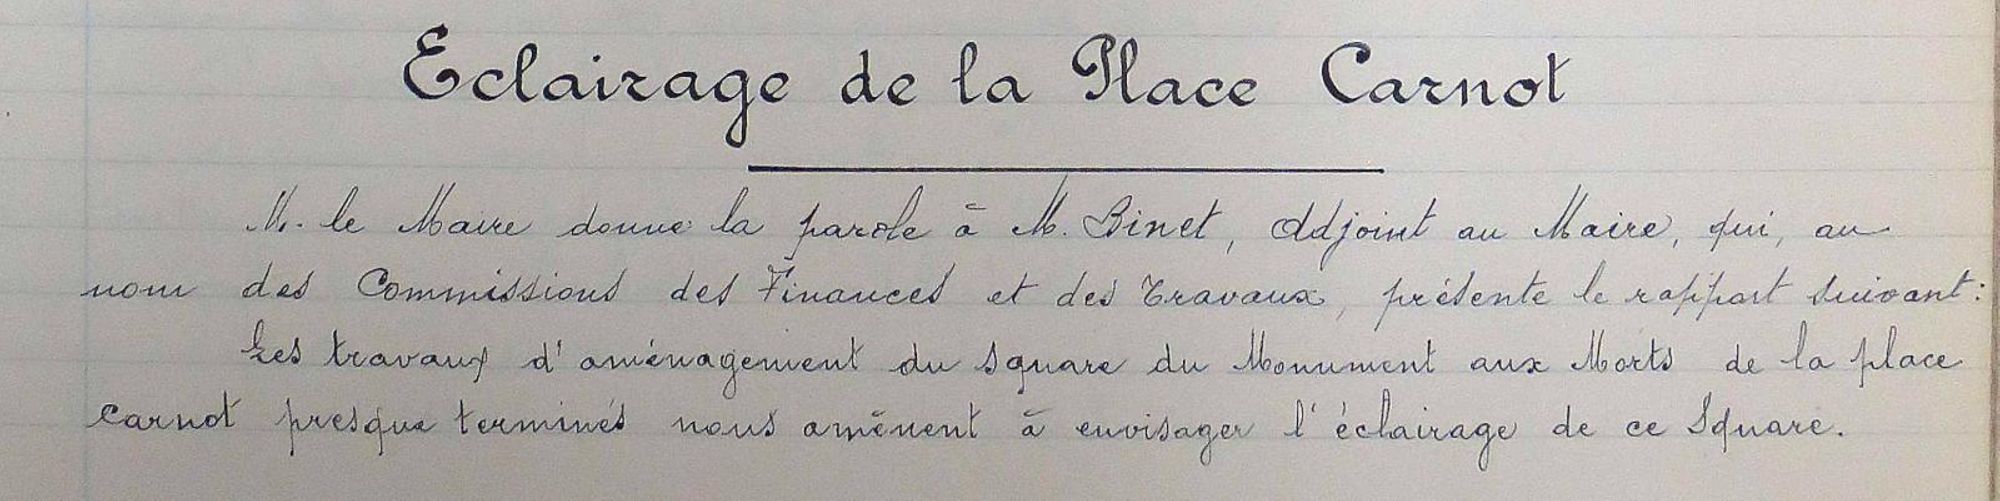 Eclairage de la Place Carnot
M. le Maire donne la parole à M. Binet, Adjoint au Maire, qui, au
nom des Commissions des Finances et des Travaux, présente le rapport suivant :
Les travaux d'aménagement du square du Monument aux Morts de la place
Carnot presque terminés nous amènent à envisager l'éclairage de ce Square.